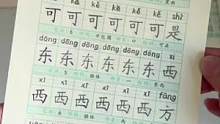 kě kě kě kě shì
可可可可是
dōng dōng dōng dōng xī
东东东东西
xī xī xī xī fāng
西西西西方